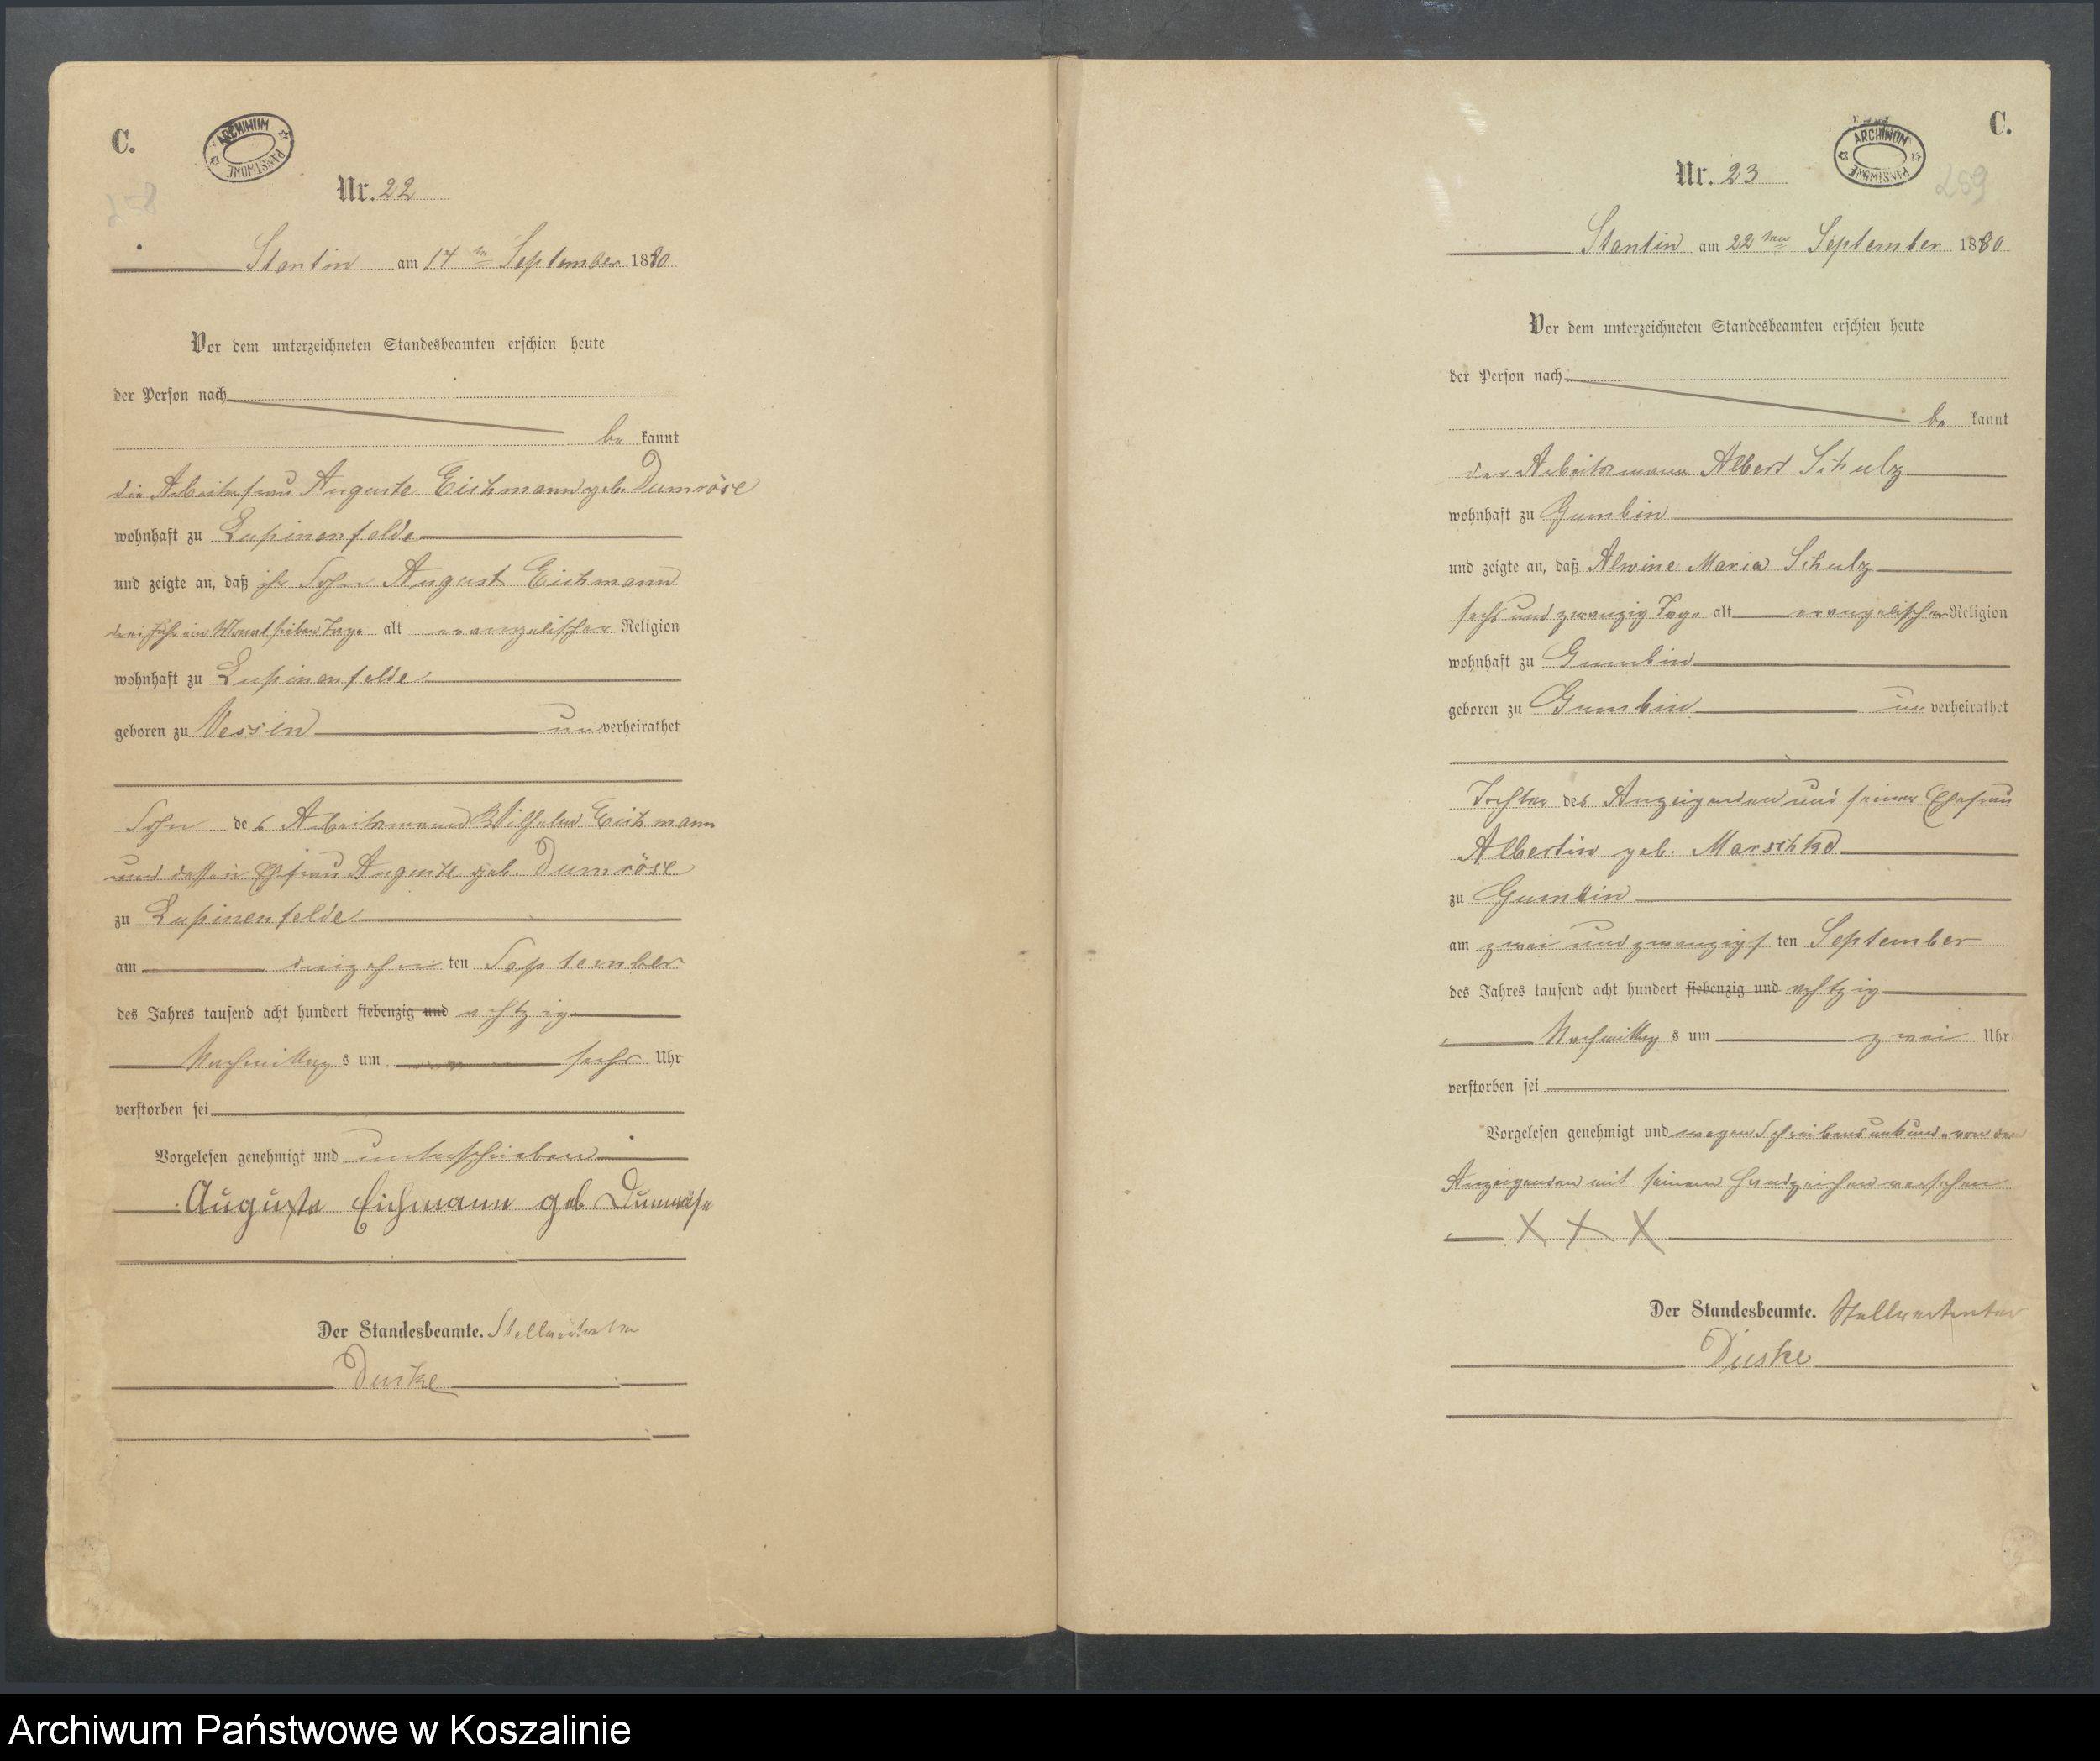 C.
ARCHIWUM PAŃSTWOWE
258
Nr. 22
Stantin am 14 ten September 1880
Vor dem unterzeichneten Standesbeamten erschien heute
der Person nach
be kannt
die Arbeiterfrau Auguste Eichmann geb. Dumröse
wohnhaft zu Lupinenfelde
und zeigte an, daß ihr Sohn August Eichmann
drei Jahr ein Monat sieben Tage alt evangelischer Religion
wohnhaft zu Lupinenfelde
geboren zu Vessin un verheirathet
Sohn des Arbeitsmann Wilhelm Eichmann
und dessen Ehefrau Auguste geb. Dumröse
zu Lupinenfelde
am dreizehn ten September
des Jahres tausend acht hundert siebenzig und achtzig
Nachmittag s um sechs Uhr
verstorben sei
Vorgelesen genehmigt und unterschrieben
Auguste Eichmann geb Dumröse
Der Standesbeamte. Stellvertreter
Duske
C.
ARCHIWUM PAŃSTWOWE
259
Nr. 23
Stantin am 22 ten September 1880
Vor dem unterzeichneten Standesbeamten erschien heute
der Person nach
be kannt
der Arbeitsmann Albert Schulz
wohnhaft zu Gumbin
und zeigte an, daß Alwine Maria Schulz
sechs und zwanzig Tage alt evangelischer Religion
wohnhaft zu Gumbin
geboren zu Gumbin un verheirathet
Tochter des Anzeigenden und seiner Ehefrau
Albertin geb. Marschke
zu Gumbin
am zwei und zwanzigs ten September
des Jahres tausend acht hundert siebenzig und achtzig
Nachmittag s um zwei Uhr
verstorben sei
Vorgelesen genehmigt und wegen Schreibensunkunde von dem
Anzeigenden mit seinem Handzeichen versehen
X X X
Der Standesbeamte. Stellvertreter
Duske
Archiwum Państwowe w Koszalinie